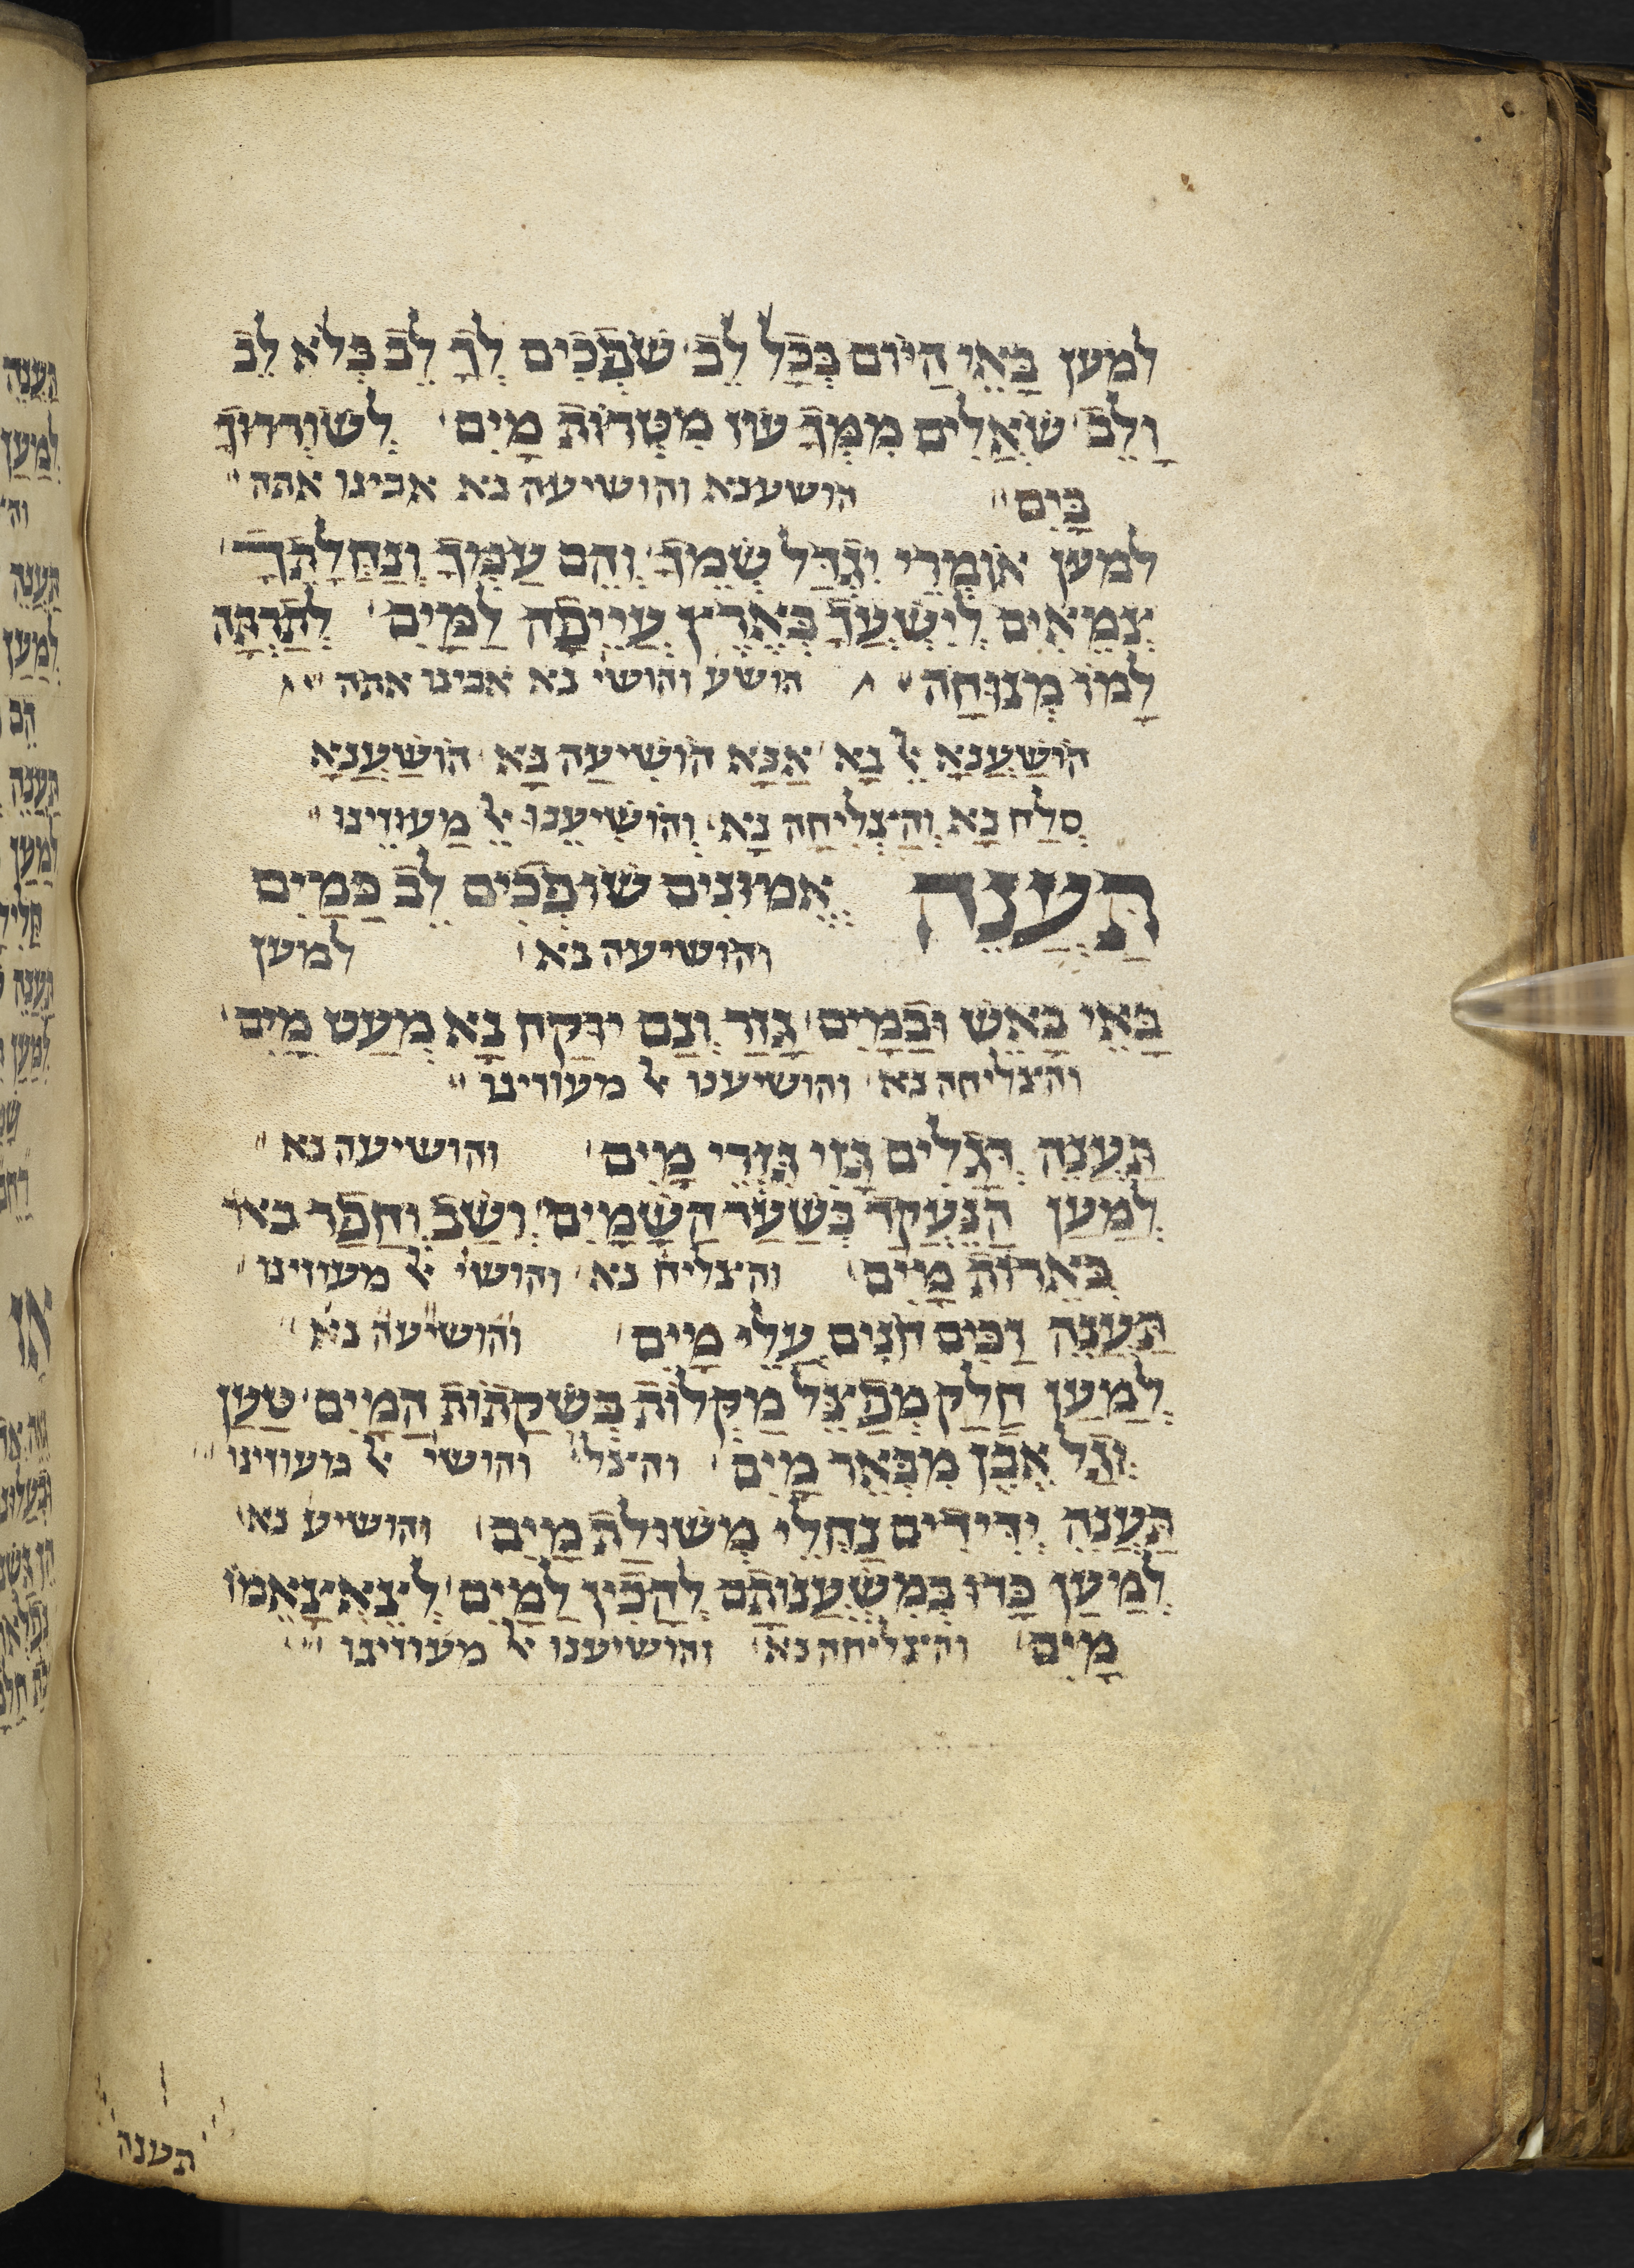 למען באי היום בכל לב שפכים לך לב בלא לב
ולב שאלים ממך עוז מטרות מים לשוררוך
בים הושענא והושיעה נא אבינו אתה
למען אומרי יגדל שמך והם עמך ונחלתך
צמאים לישעך כארץ עייפה למים לתרתה
למו מנוחה הושע והושי נא אבינו אתה
הושענא אל נא אנא הושיעה נא הושענא
סלח נא והצליחה נא והושיענו אל מעוזינו
תענה אמונים שופכים לב כמים
והושיעה נא למען
באי באש ובמים גזר ונם יוקח נא מעט מים
והצליחה נא והושיענו אל מעוזינו
תענה דגלים גזו גזרי מים והושיעה נא
למען הנעקד בשער השמים ושב וחפר באר
בארות מים והצליח נא והושי אל מעוזינו
תענה זכים חנים עלי מים והושיעה נא
למען חלק מפצל מקלות בשקתות המים טען
וגל אבן מבאר מים והצל והושי אל מעוזינו
תענה ידידים נחלי משולת מים והושיע נא
למען כרו במשענותם להכין למים לצאצאמו
מים והצליחה נא והושיענו אל מעוזינו
תענה